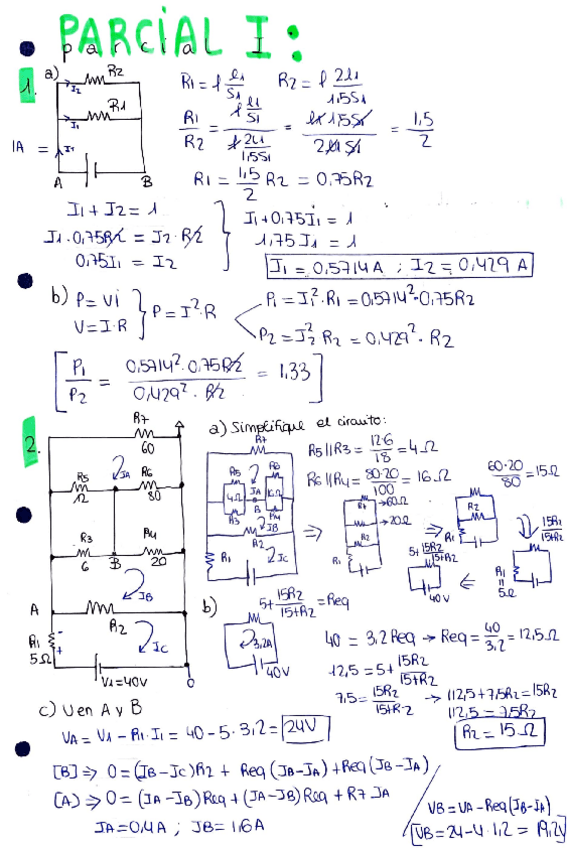 PARCIAL I:
parcial
1. a)
R2
I2
R1
I1
1A =
I1
A B
R1 = ρ l1/S1   R2 = ρ 2l1/1,5S1
R1/R2 = (ρ l1/S1)/(ρ 2l1/1,5S1) = l1 1,5S1/2l1 S1 = 1,5/2
R1 = 1,5/2 R2 = 0,75R2
I1 + I2 = 1
I1 · 0,75R2 = I2 · R2
0,75I1 = I2
I1 + 0,75I1 = 1
1,75 I1 = 1
I1 = 0,5714A ; I2 = 0,429 A
b) P = VI
V = I·R
P = I²·R
P1 = I1²·R1 = 0,5714²·0,75R2
P2 = I2² R2 = 0,429² · R2
[P1/P2 = 0,5714²·0,75R2/0,429²·R2 = 1,33]
2.
R7
60
R5
12
IA
R6
80
R3
6
B
R4
20
IB
A
R2
R1
5Ω
IC
V1=40V
0
a) Simplifique el circuito:
R7
R5
R6
4Ω
IA
16Ω
R3
B
R4
IB
R2
R1
IC
R5||R3 = 12·6/18 = 4Ω
R6||R4 = 80·20/100 = 16Ω
60·20/80 = 15Ω
60Ω
20Ω
R2
R1
R2
R1
15R2/15+R2
R1 = 5Ω
5+15R2/15+R2
40V
b)
5+15R2/15+R2 = Req
3,2A
40V
40 = 3,2Req → Req = 40/3,2 = 12,5Ω
12,5 = 5+15R2/15+R2
7,5 = 15R2/15+R2 → 112,5+7,5R2=15R2
112,5 = 7,5R2
R2 = 15Ω
c) V en A y B
VA = V1 - R1·I1 = 40-5·3,2 = 24V
[B] ⇒ 0=(IB-IC)R2 + Req(IB-IA)+Req(IB-IA)
[A] ⇒ 0=(IA-IB)Req+(IA-IB)Req + R7 IA
IA=0,4A ; IB=1,6A
VB=VA-Req(IB-IA)
[VB=24-4·1,2 = 19,2V]